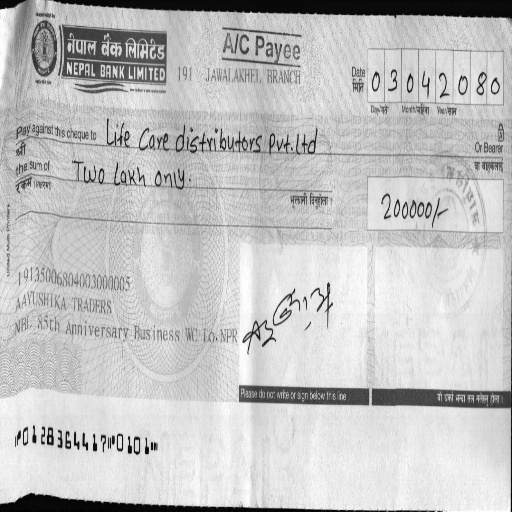 नेपाल बैंक लिमिटेड
NEPAL BANK LIMITED
191 JAWALAKHEL BRANCH
A/C Payee
Date
मिति
03042080
Pay against this cheque to Life Care distributors Pvt.Ltd
श्री
Or Bearer
the sum of Two lakh only.
200000/-
19135006804003000005
AAYUSHIKA TRADERS
NBL 85th Anniversary Business WC Lo.NPR
Please do not write or sign below this line
⑈0128364417⑈0101⑈